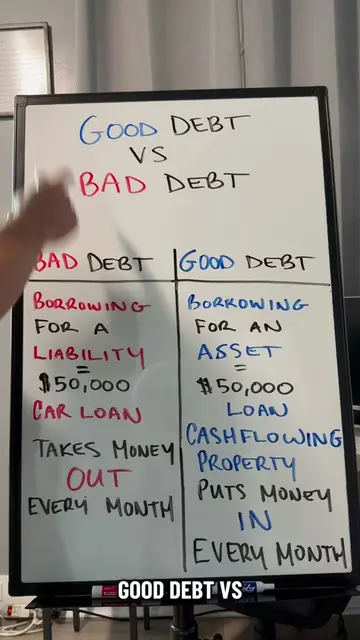 GOOD DEBT
VS
BAD DEBT
BAD DEBT
BORROWING
FOR A
LIABILITY
=
$50,000
CAR LOAN
TAKES MONEY
OUT
EVERY MONTH
GOOD DEBT
BORROWING
FOR AN
ASSET
=
$50,000
LOAN
CASHFLOWING
PROPERTY
PUTS MONEY
IN
EVERY MONTH
GOOD DEBT VS